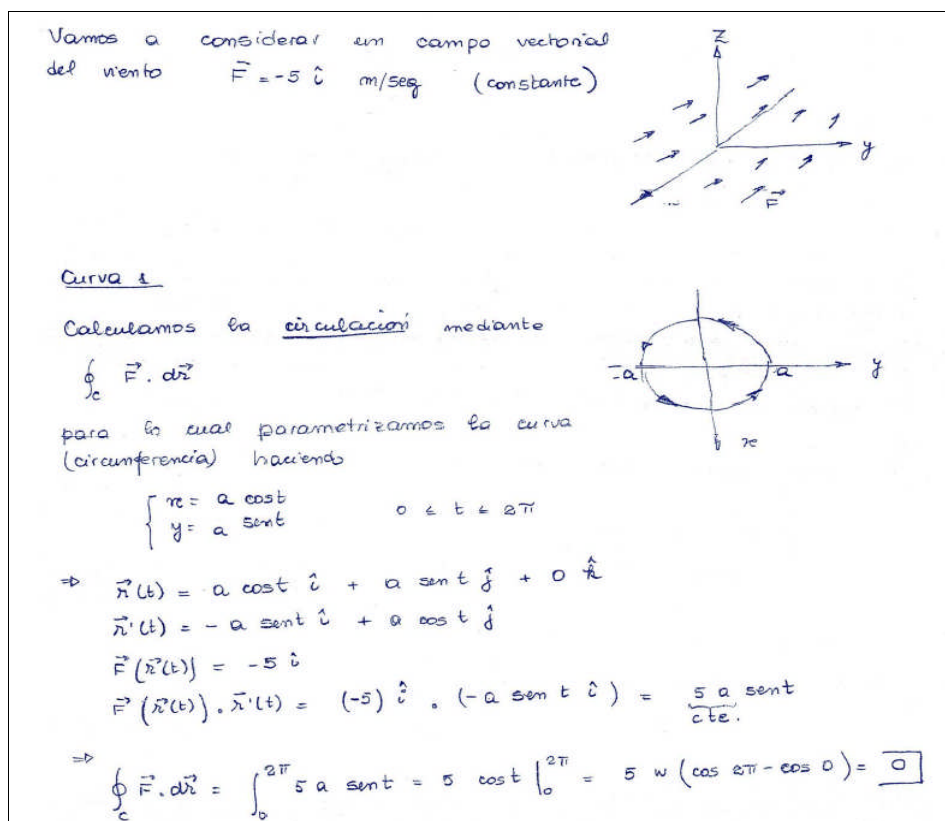 Vamos a considerar un campo vectorial
del viento F⃗ = -5 î m/seg (constante)
z
y
F⃗
Curva 1
Calculamos la circulación mediante
∮c F⃗ . dr⃗
-a a y
x
para lo cual parametrizamos la curva
(circunferencia) haciendo
{ x = a cos t
y = a sent 0 ≤ t ≤ 2π
⇒ r⃗(t) = a cost î + a sen t ĵ + 0 k̂
r⃗'(t) = - a sent î + a cos t ĵ
F⃗ (r⃗(t)) = -5 î
F⃗ (r⃗(t)) . r⃗'(t) = (-5) î . (-a sen t î) = 5 a sent
cte.
⇒ ∮c F⃗ . dr⃗ = ∫₀^2π 5 a sent = 5 cost |₀^2π = 5 w (cos 2π - cos 0) = 0